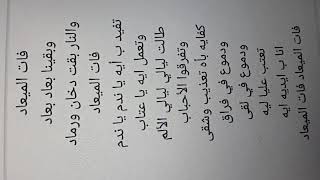 فات الميعاد
وبقينا بعاد بعاد
والنار بقت دخان ورماد
فات الميعاد
تفيد ب أيه يا ندم يا ندم
وتعمل ايه يا عتاب
طالت ليالي ليالي الألم
وتفرقوا الأحباب
كفايه بأه تعذيب وشقى
ودموع في فراق
ودموع في لقى
تعتب عليا ليه
انا ب ايديه ايه
فات الميعاد فات الميعاد